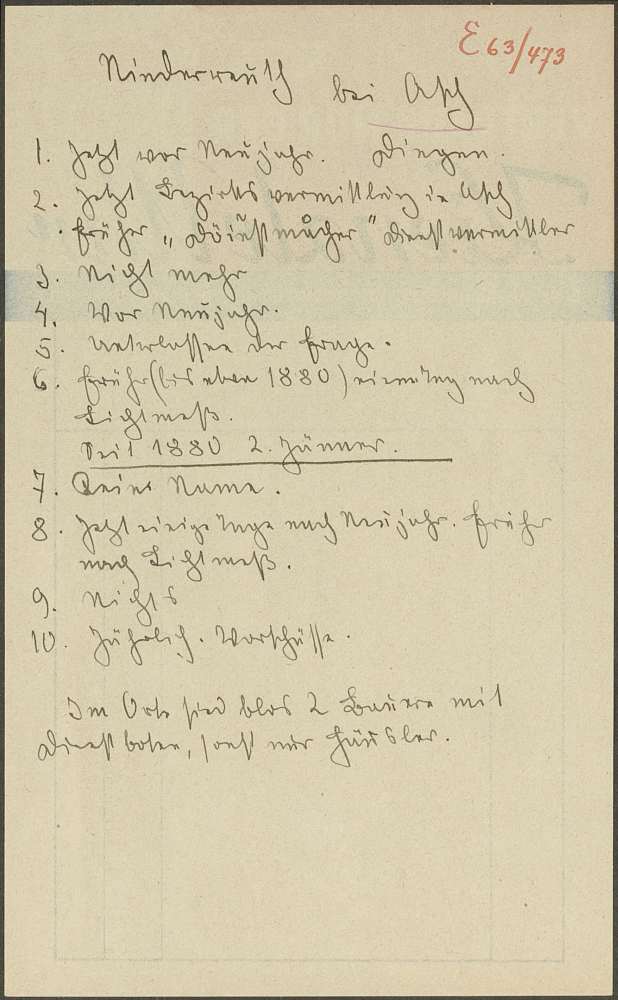 E 63/473
Niederreuth
bei Asch
1. Jetzt vor Neujahr. Dingen.
2. Jetzt Bezirksvermittlung in Asch
Früher „Döinstmåcher" Dienstvermittler
3. Nicht mehr
4. Vor Neujahr.
5. Unterlassen der Frage.
6. Früher (bis etwa 1880) einen Tag nach
Lichtmeß.
Seit 1880 2. Jänner.
7. Keine Name.
8. Jetzt einige Tage nach Neujahr. Früher
nach Lichtmeß.
9. Nichts
10. Jährlich. Vorschüsse.
Im Orte sind blos 2 Bauern mit
Dienstboten, sonst nur Häusler.